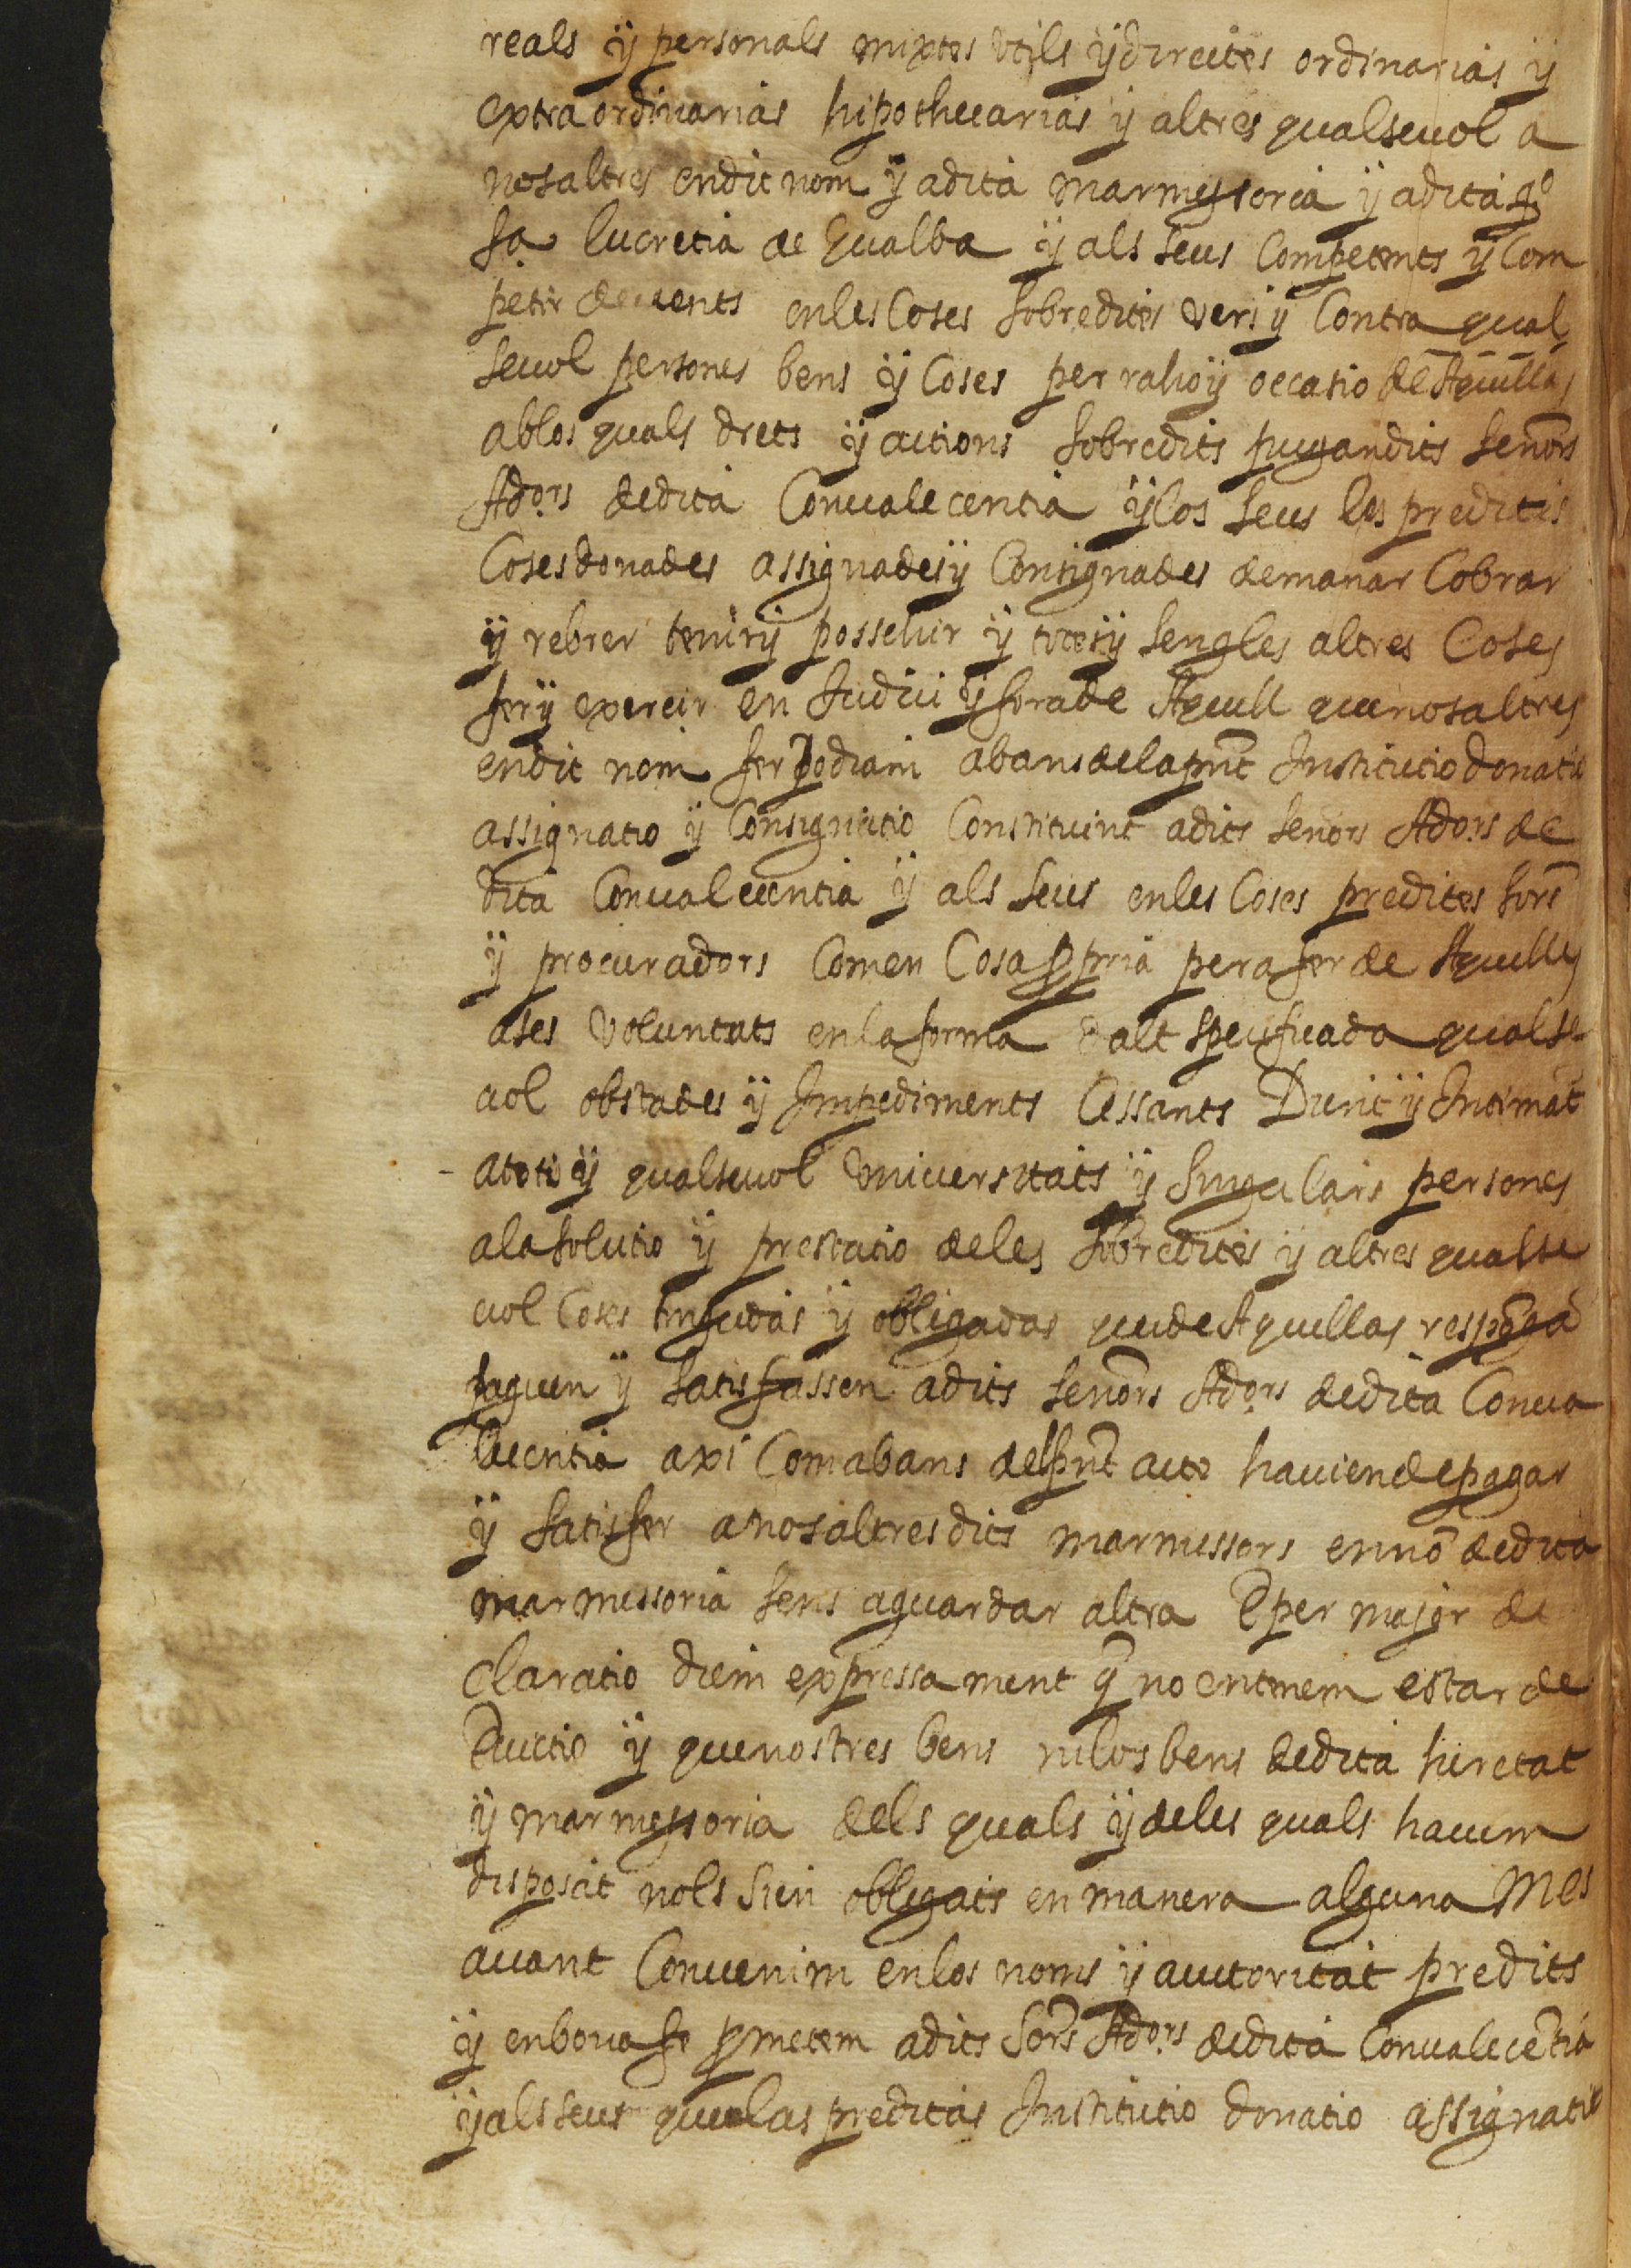 reals ÿ personals mixtes vtils ÿ directes ordinarias ÿ
extraordinarias hipothecarias ÿ altres qualseuol a
nosaltres endit nom ÿ adita marmessoria ÿ adita qº
sa lucretia de Gualba ÿ als seus Competents ÿ Com
petir deuents enles Coses sobredites vers ÿ Contra qual
seuol persones bens ÿ Coses per raho ÿ occasio de Aquellas
ablos quals drets ÿ actions sobredits pugan dits señors
Adors. dedita Conualecentia ÿ los seus les predites
Coses donades assignades ÿ Consignades demanar Cobrar
ÿ rebrer tenir ÿ possehir ÿ totes ÿ sengles altres Coses
fer ÿ exercir en Judici ÿ fora de Aquell que nosaltres
endit nom fer podiam abans dela pnt Institutio donatio
assignatio ÿ Consignatio Constituint adits señors Adors. de
dita Conualecentia ÿ als seus enles Coses predites sors
ÿ procuradors Comen Cosa ppria pera fer de Aquelles
a ses voluntats enla forma dalt specificada qualse
uol obstades ÿ Impediments Cessants Dient ÿ Intimat
a tots ÿ qualseuol vniuersitats ÿ singulars persones
ala solutio ÿ prestatio deles sobredites ÿ altres qualse
uol Coses tingudas ÿ obligadas que de Aquellas respōgā
paguen ÿ satisfassen adits señors Adors. dedita Conua
lecentia axi Com abans del pnt acte hauien de pagar
ÿ satisfer a nosaltres dits marmessors en nō dedita
marmessoria sens aguardar altra E per major de
claratio diem expressament q̄ no entenem estar de
Euictio ÿ que nostres bens ni los bens dedita heretat
ÿ marmessoria dels quals ÿ deles quals hauem
disposat nols sien obligats en manera alguna Mes
auant Conuenim enlos noms ÿ auctoritat predits
ÿ en bona fe pmetem adits Sors Adors. dedita Conualecētia
ÿ als seus que las preditas Institutio donatio assignatio